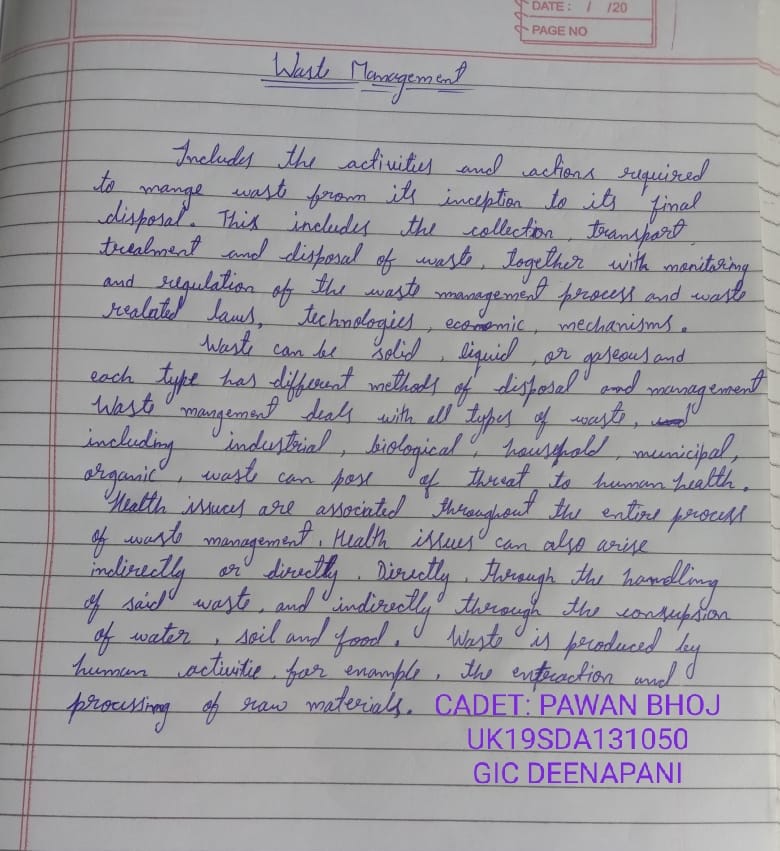 DATE: / /20
PAGE NO
Waste Management
Includes the activities and actions required
to mange waste from its inception to its final
disposal. This includes the collection, transport,
treatment and disposal of waste, together with monitoring
and regulation of the waste management process and waste
realated laws, technologies, economic, mechanisms.
Waste can be solid, liquid, or gaseous and
each type has different methods of disposal and management
Waste mangement deals with all types of waste,
including industrial, biological, household, municipal,
organic, waste can pose of threat to human health.
Health issues are associated throughout the entire process
of waste management. Health issues can also arise
indirectly or directly. Directly, through the handling
of said waste, and indirectly through the consuption
of water, soil and food. Waste is produced by
human activitie, for enample, the enteraction and
processing of raw materials. CADET: PAWAN BHOJ
UK19SDA131050
GIC DEENAPANI